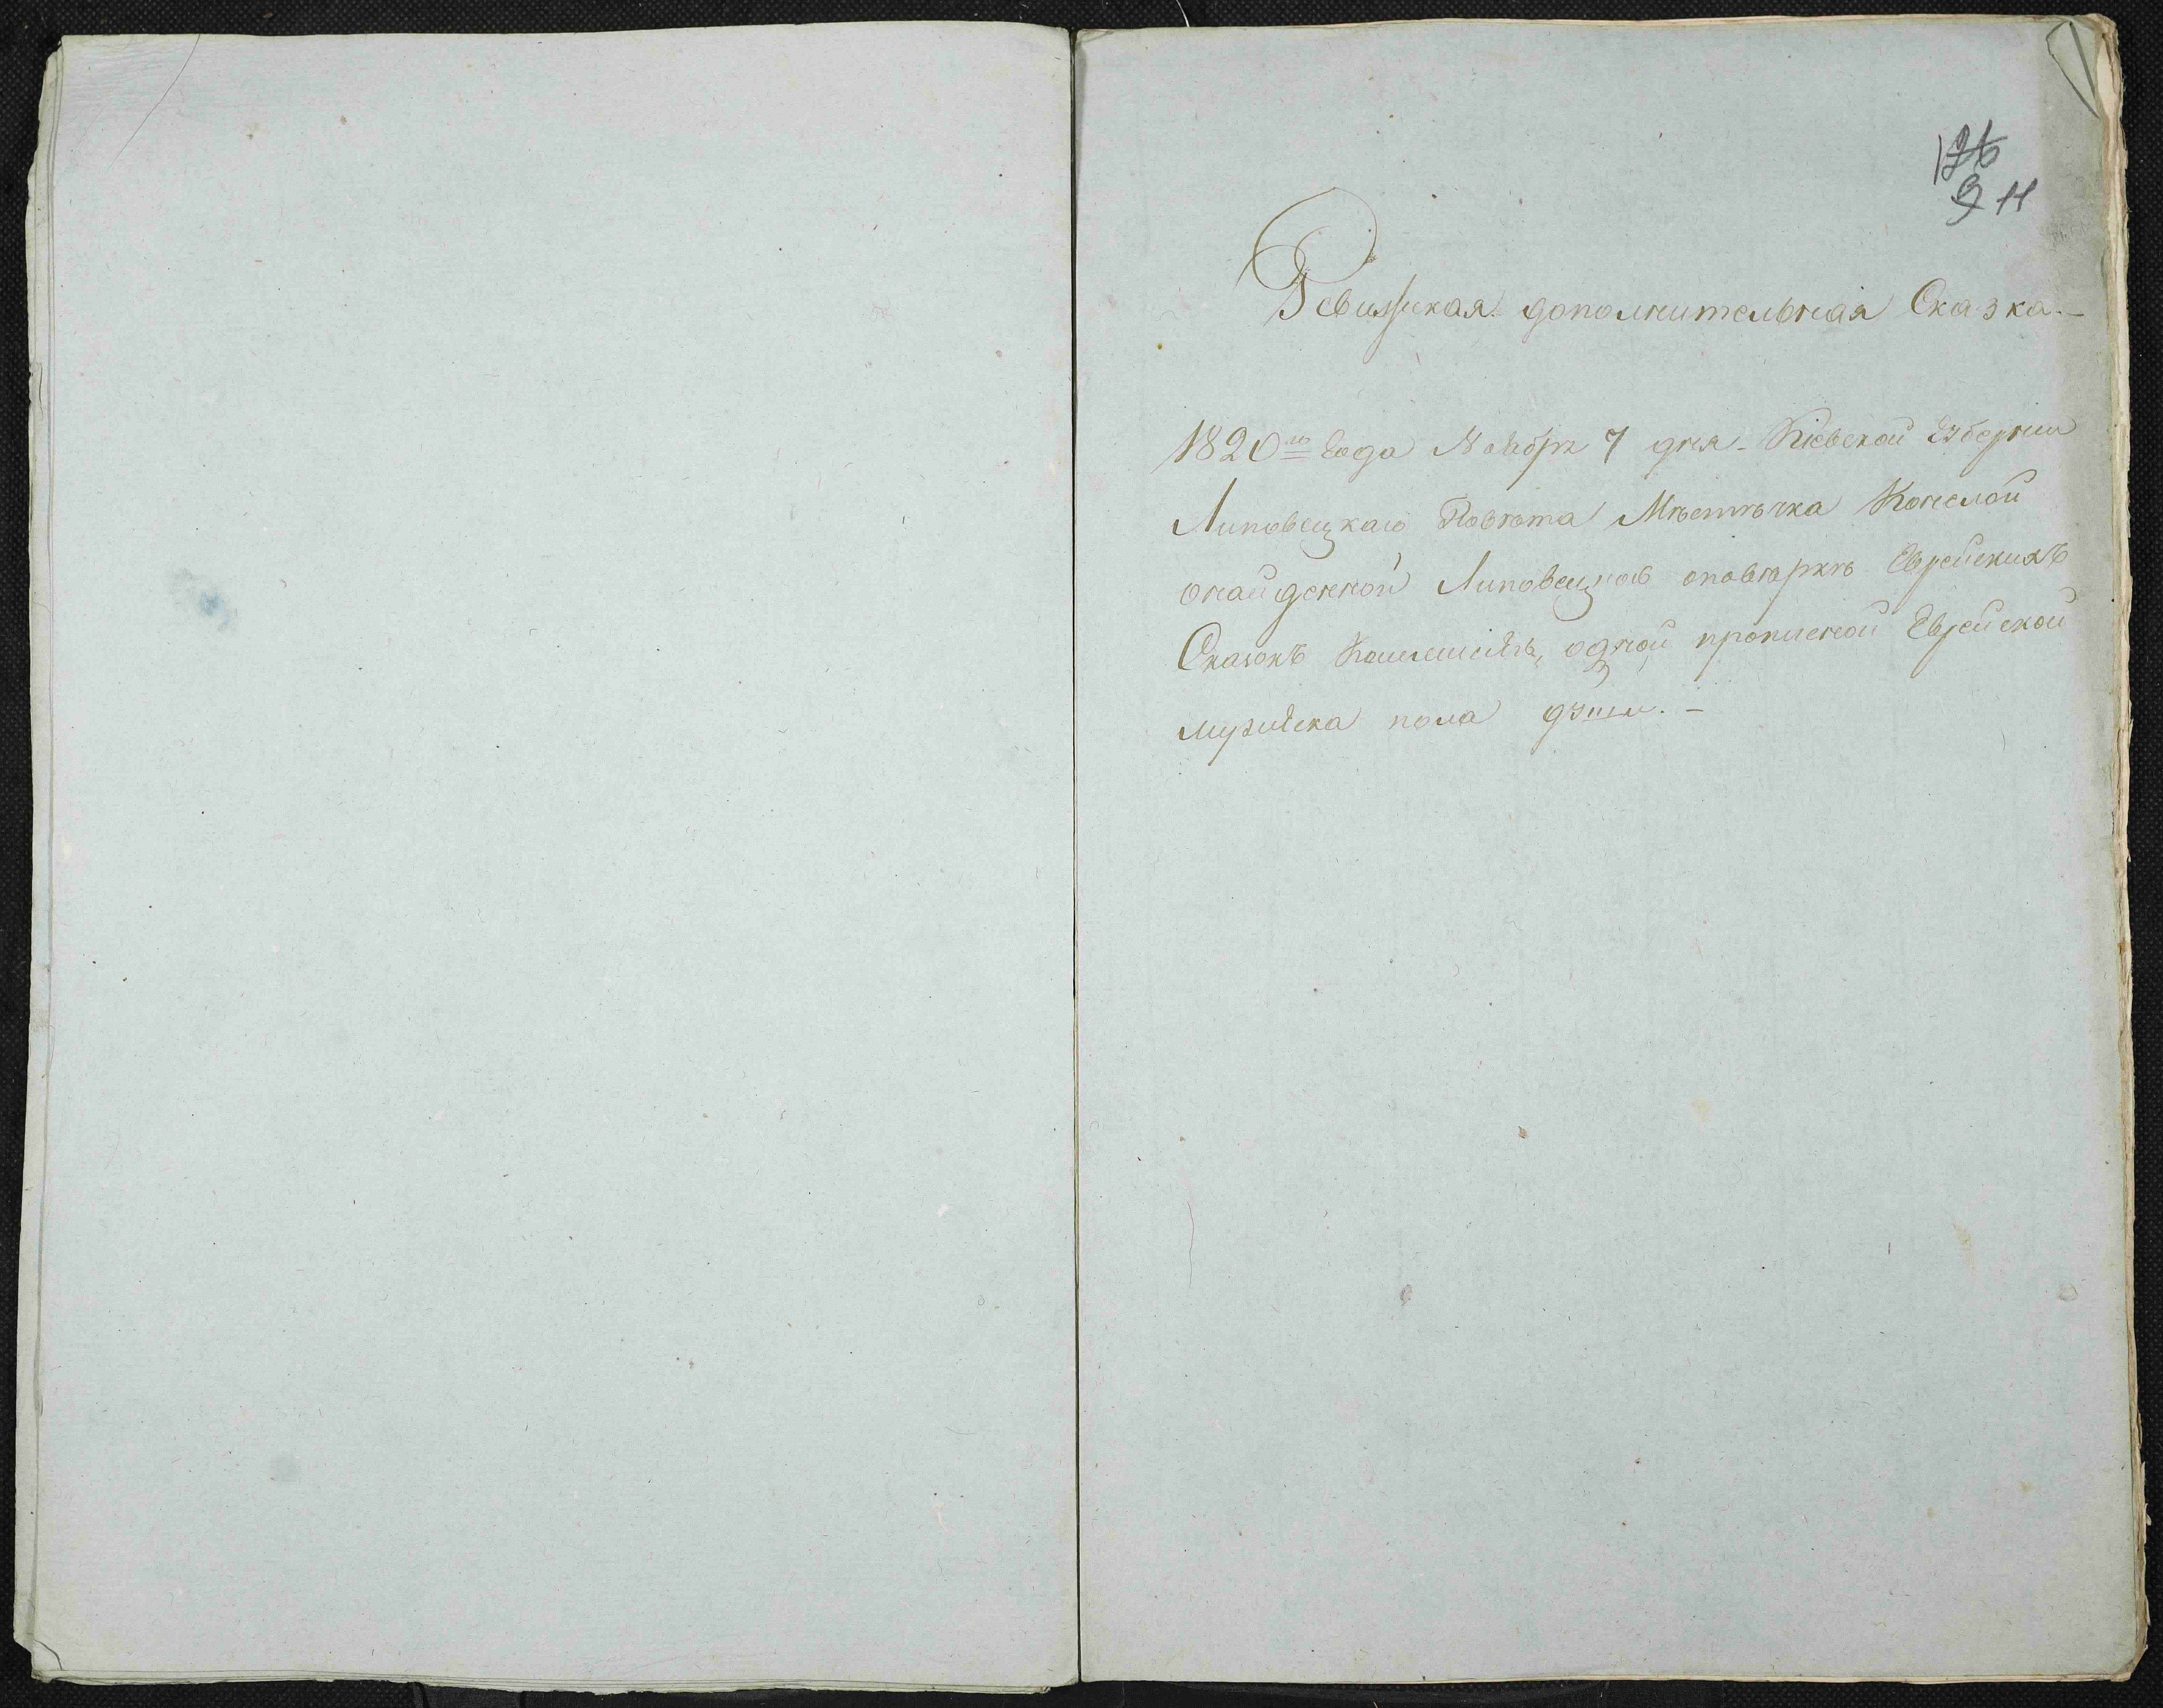 11
Ревизская дополнительная Сказка.
1820го Года Ноября 7 дня. Кіевской Губерніи
Липовецкаго Повѣта Мѣстѣчка Конелой
онайденной Липовецкою оповѣркѣ Еврейскихъ
Сказокъ Коммисіею, одной прописной Еврейской
мужеска пола души.